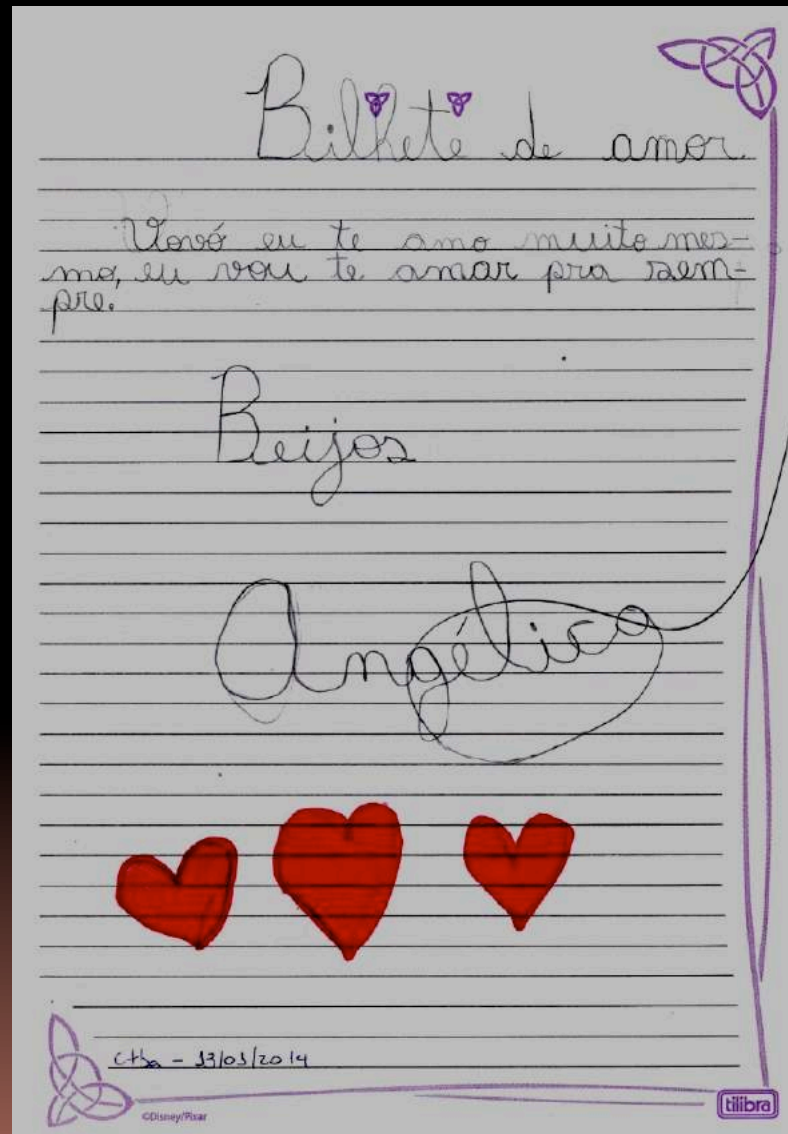 Bilhete de amor.
Vovó eu te amo muito mes-
mo, eu vou te amar pra sem-
pre.
Beijos
Angélica
Ctba - 13/01/2014
©Disney/Pixar
tilibra